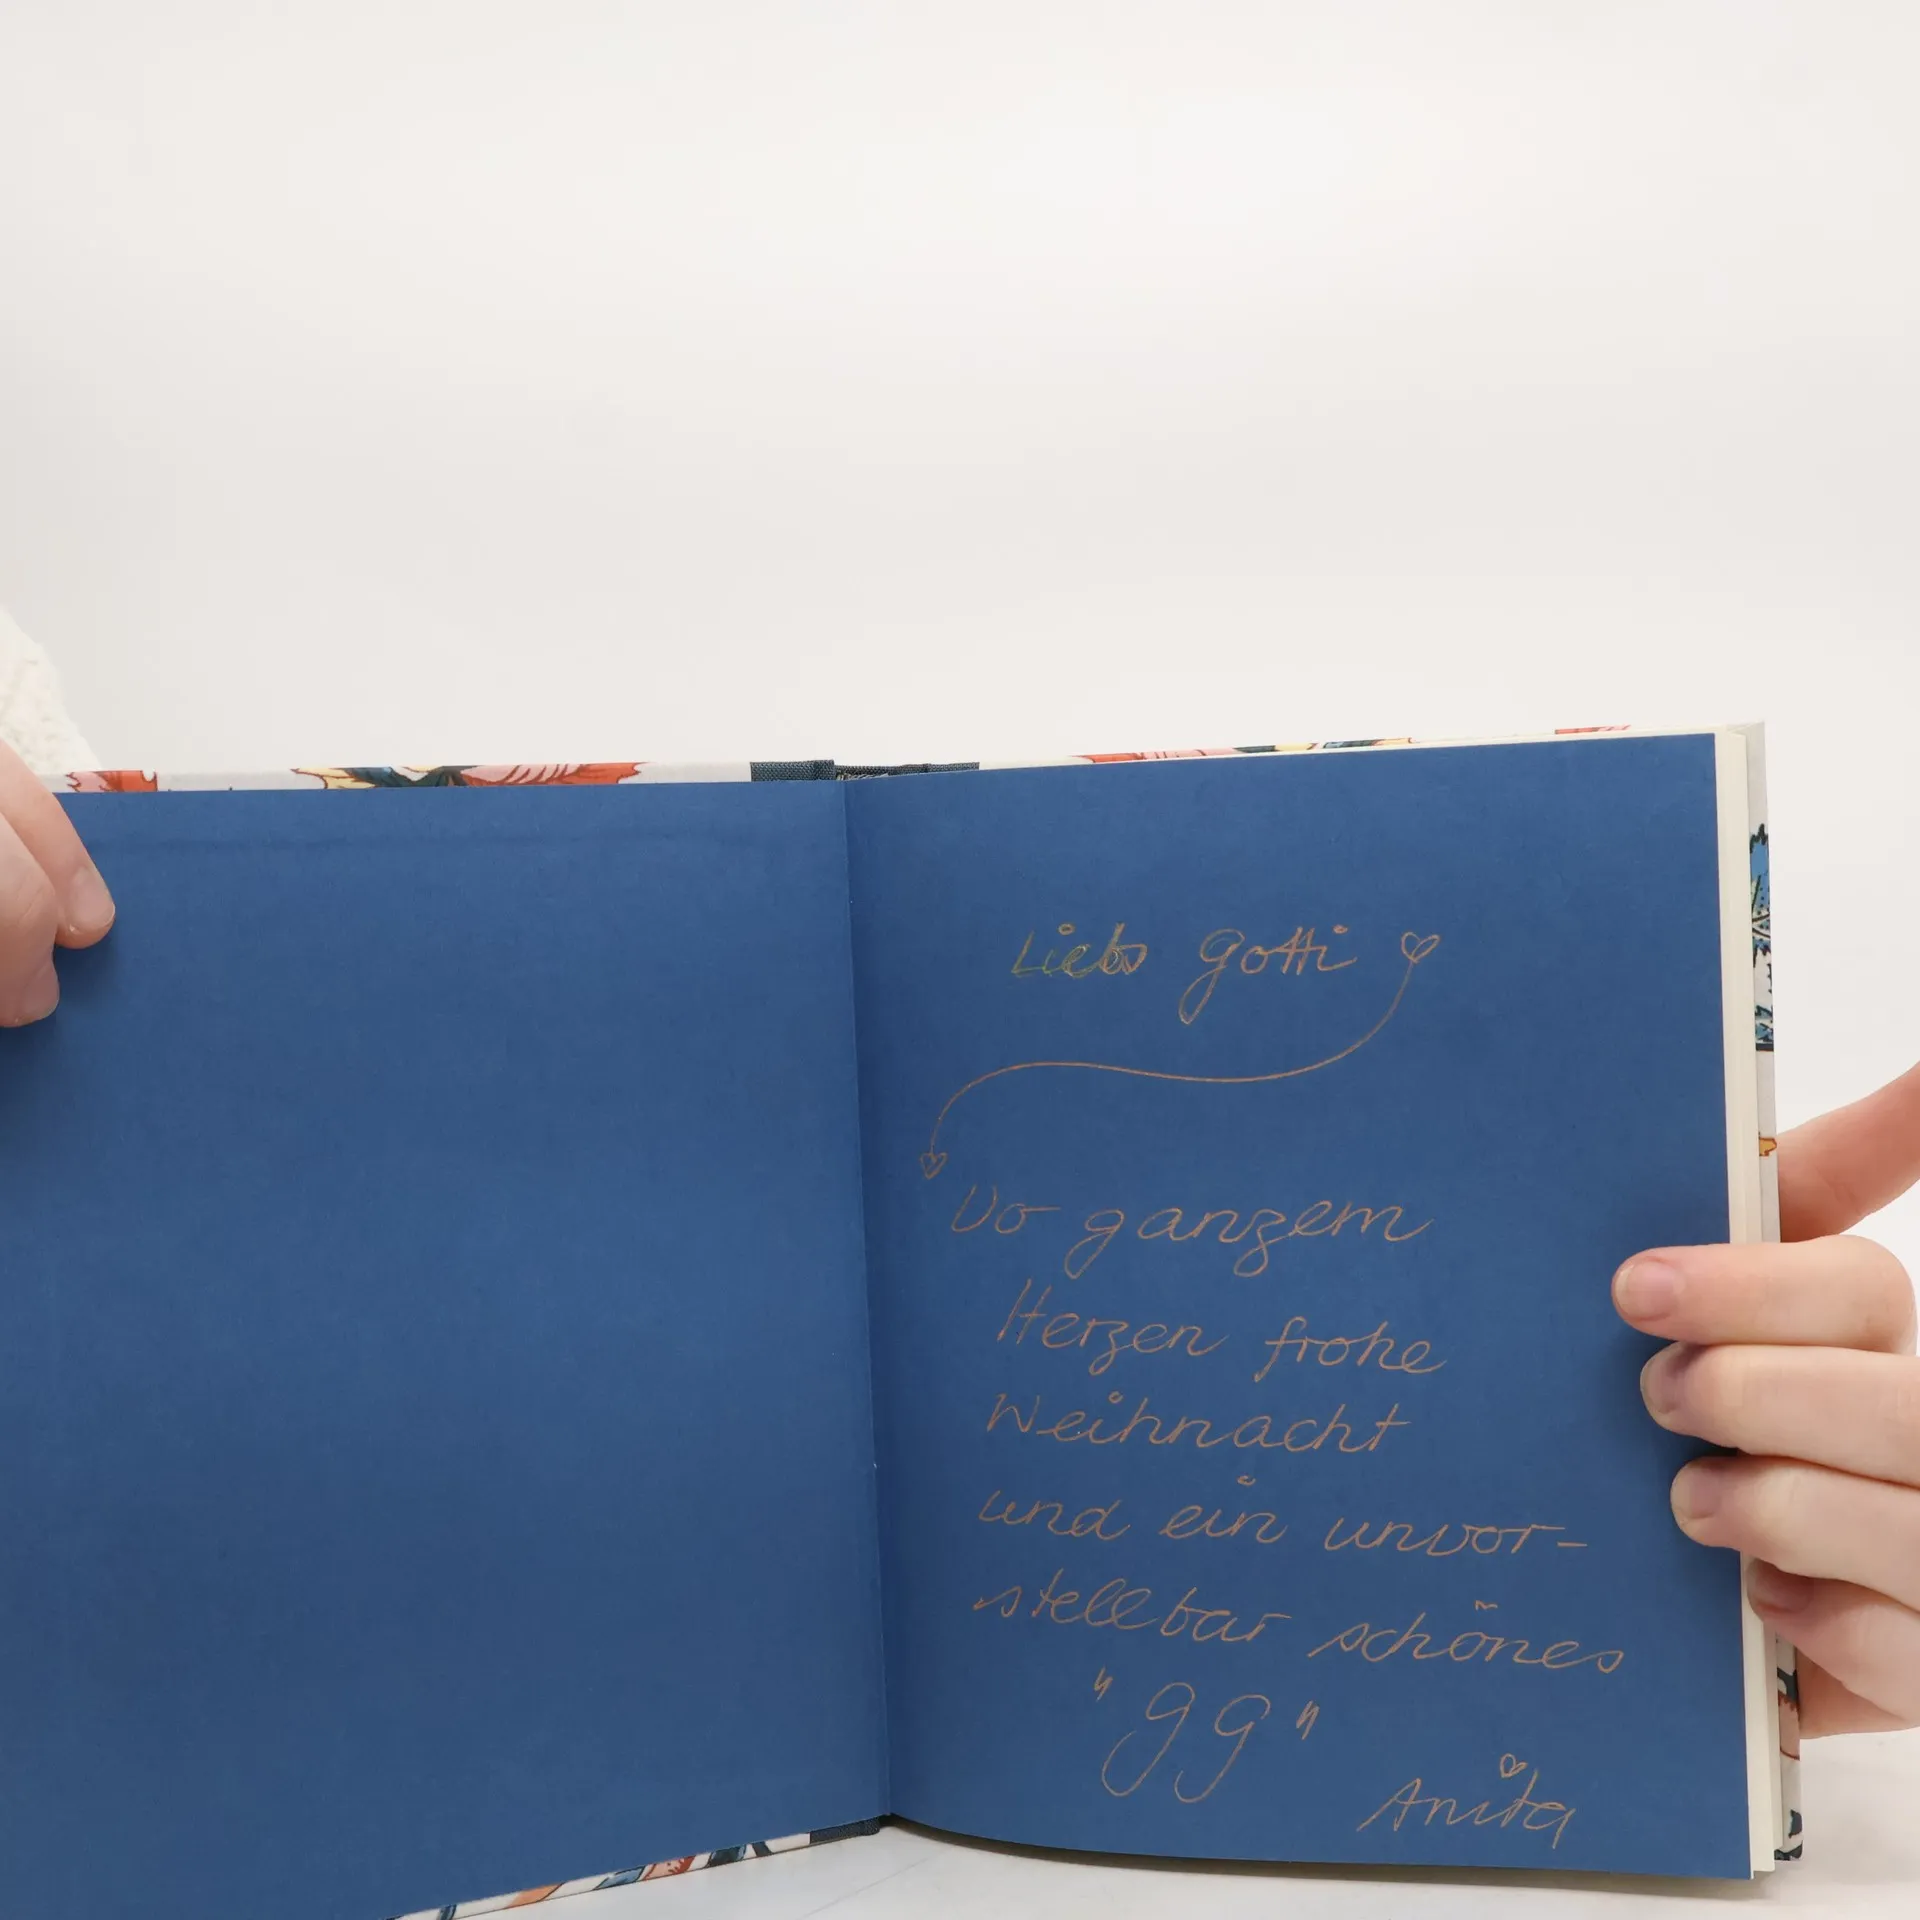 Liebs Gotti
Vo ganzem
Herzen frohe
Weihnacht
und ein unvor-
stellbar schönes
"99"
Anita